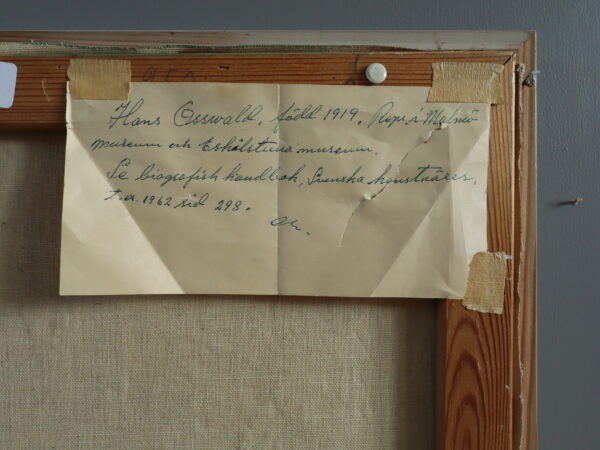 Hans Osswald, född 1919. Repr. i Malmö
museum och Eskilstuna museum.
Se biografisk handbok, Svenska konstnärer,
1962 sid 298.